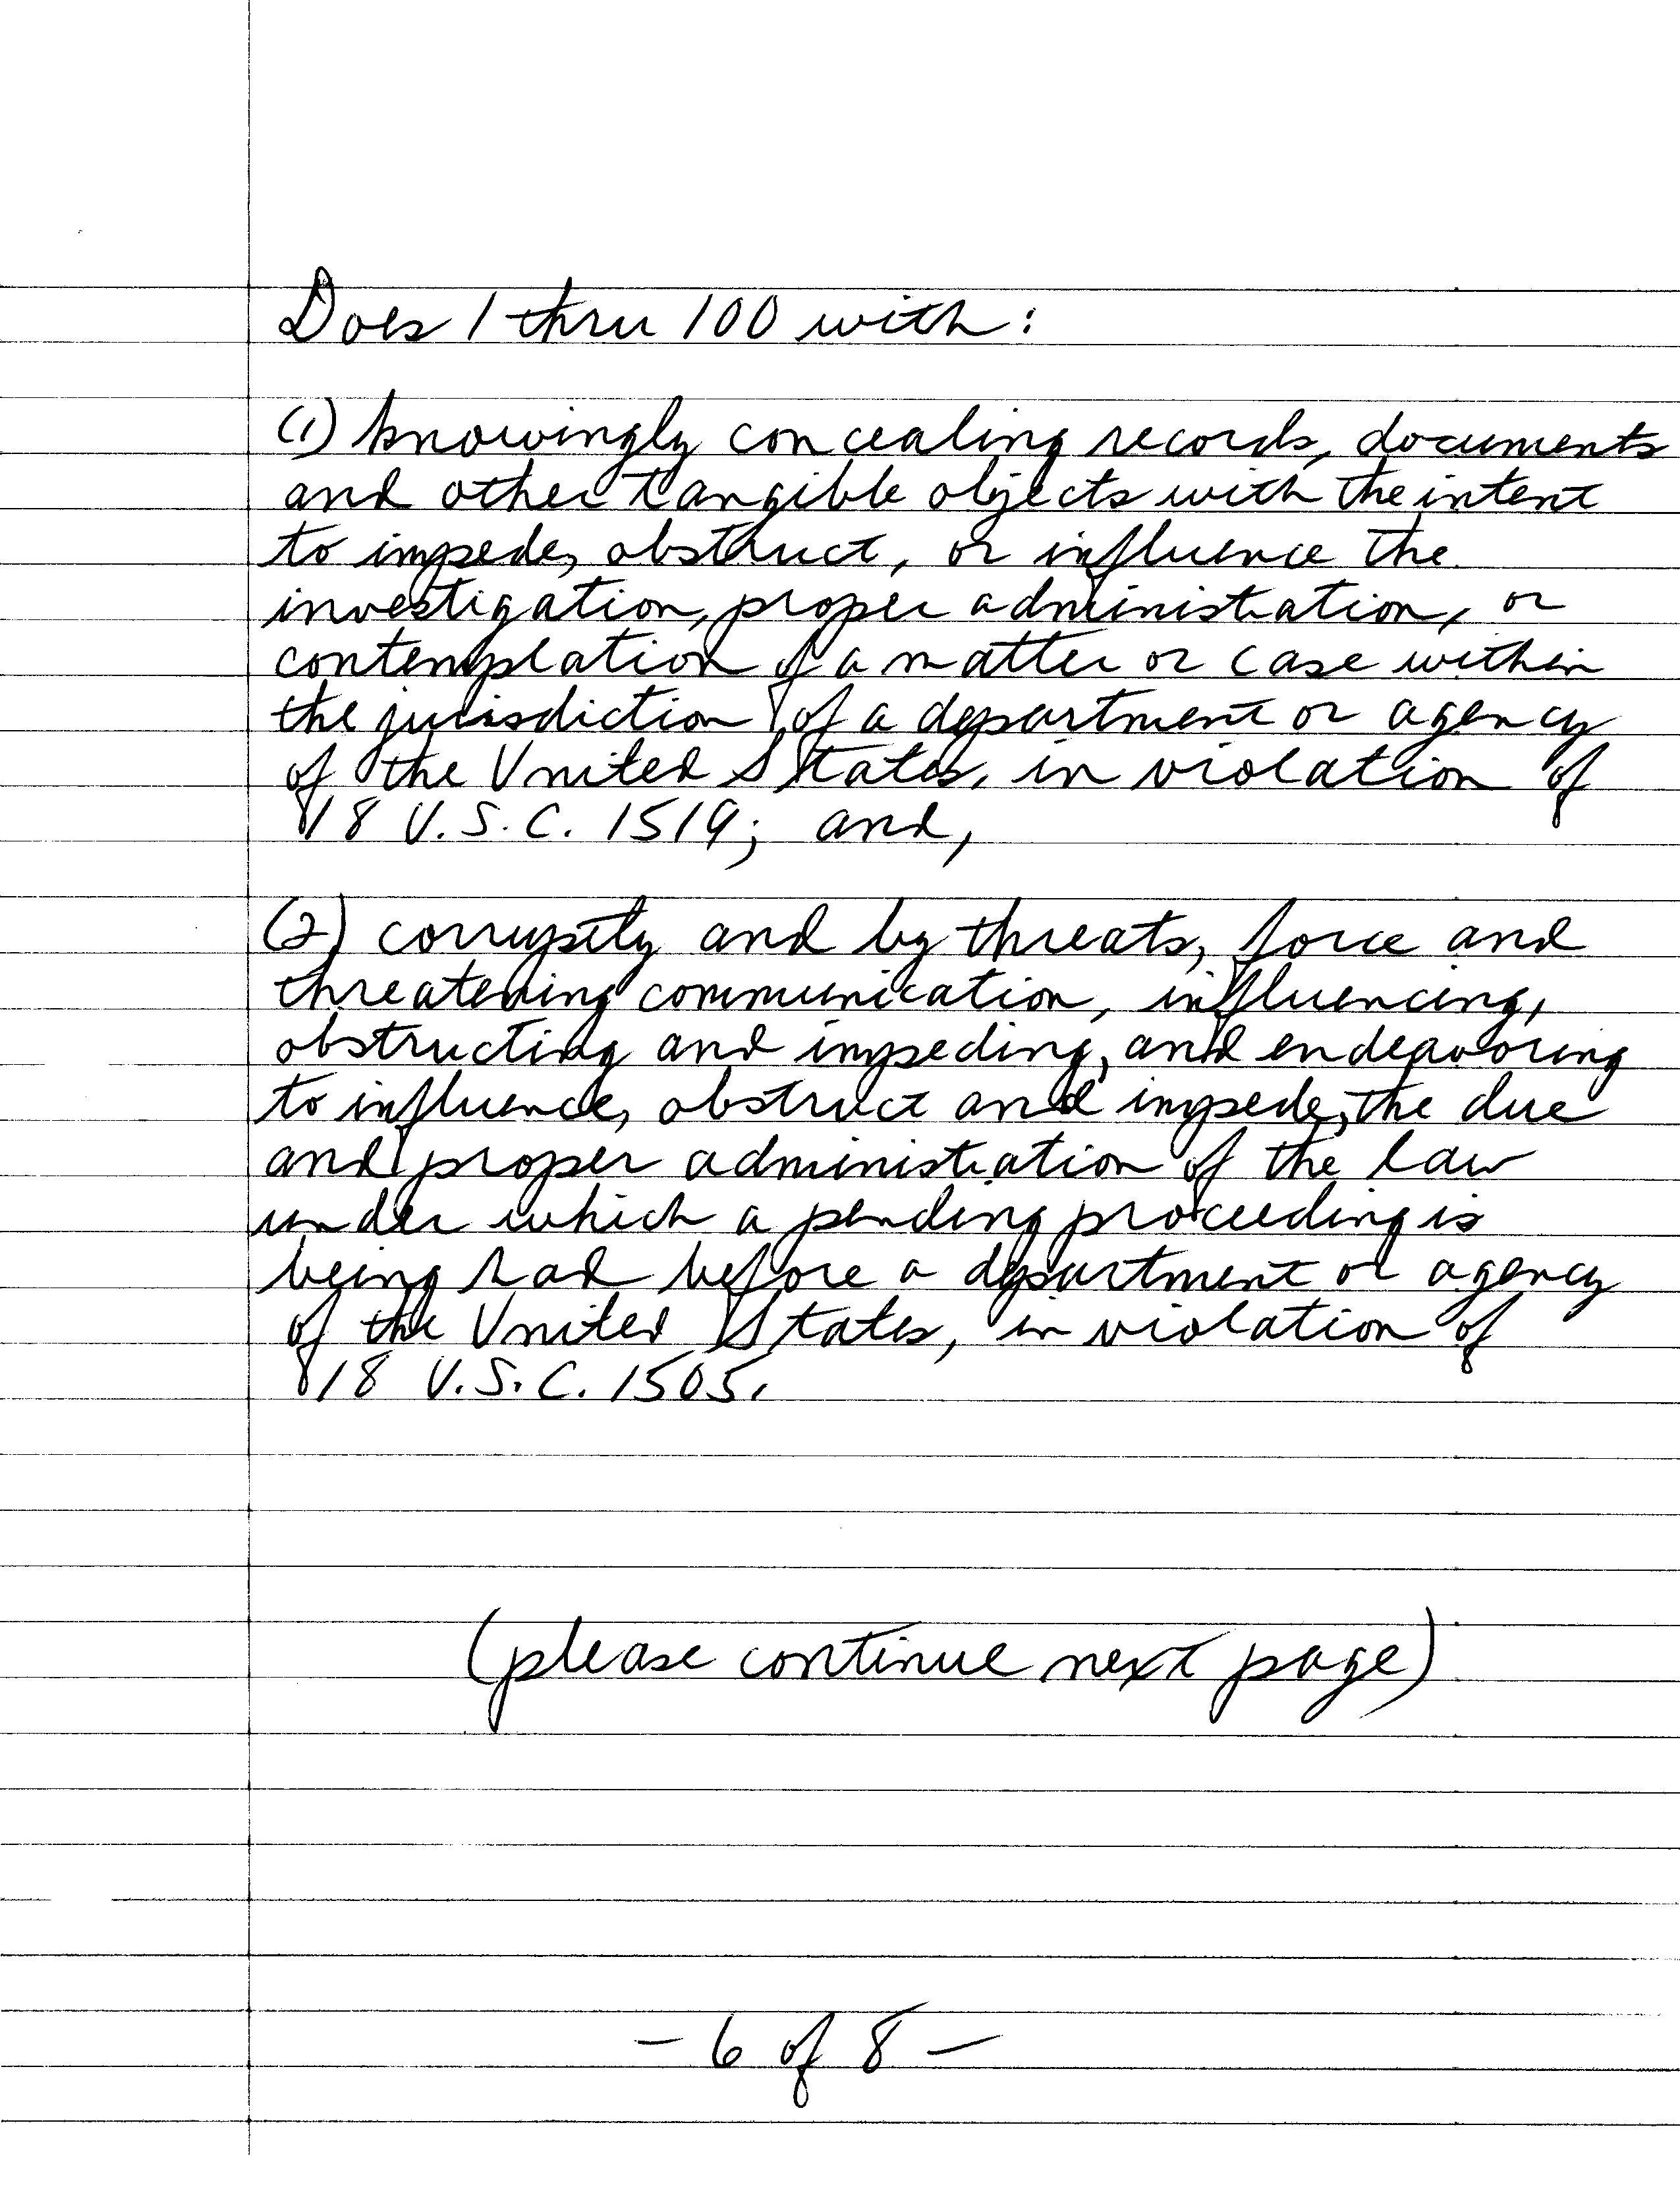 Does 1 thru 100 with:
(1) knowingly concealing records, documents
and other tangible objects with the intent
to impede, obstruct, or influence the
investigation, proper administration, or
contemplation of a matter or case within
the jurisdiction of a department or agency
of the United States, in violation of
18 U.S.C. 1519; and,
(2) corruptly and by threats, force and
threatening communication, influencing,
obstructing and impeding, and endeavoring
to influence, obstruct and impede, the due
and proper administration of the law
under which a pending proceeding is
being had before a department or agency
of the United States, in violation of
18 U.S.C. 1505.
(please continue next page)
- 6 of 8 -